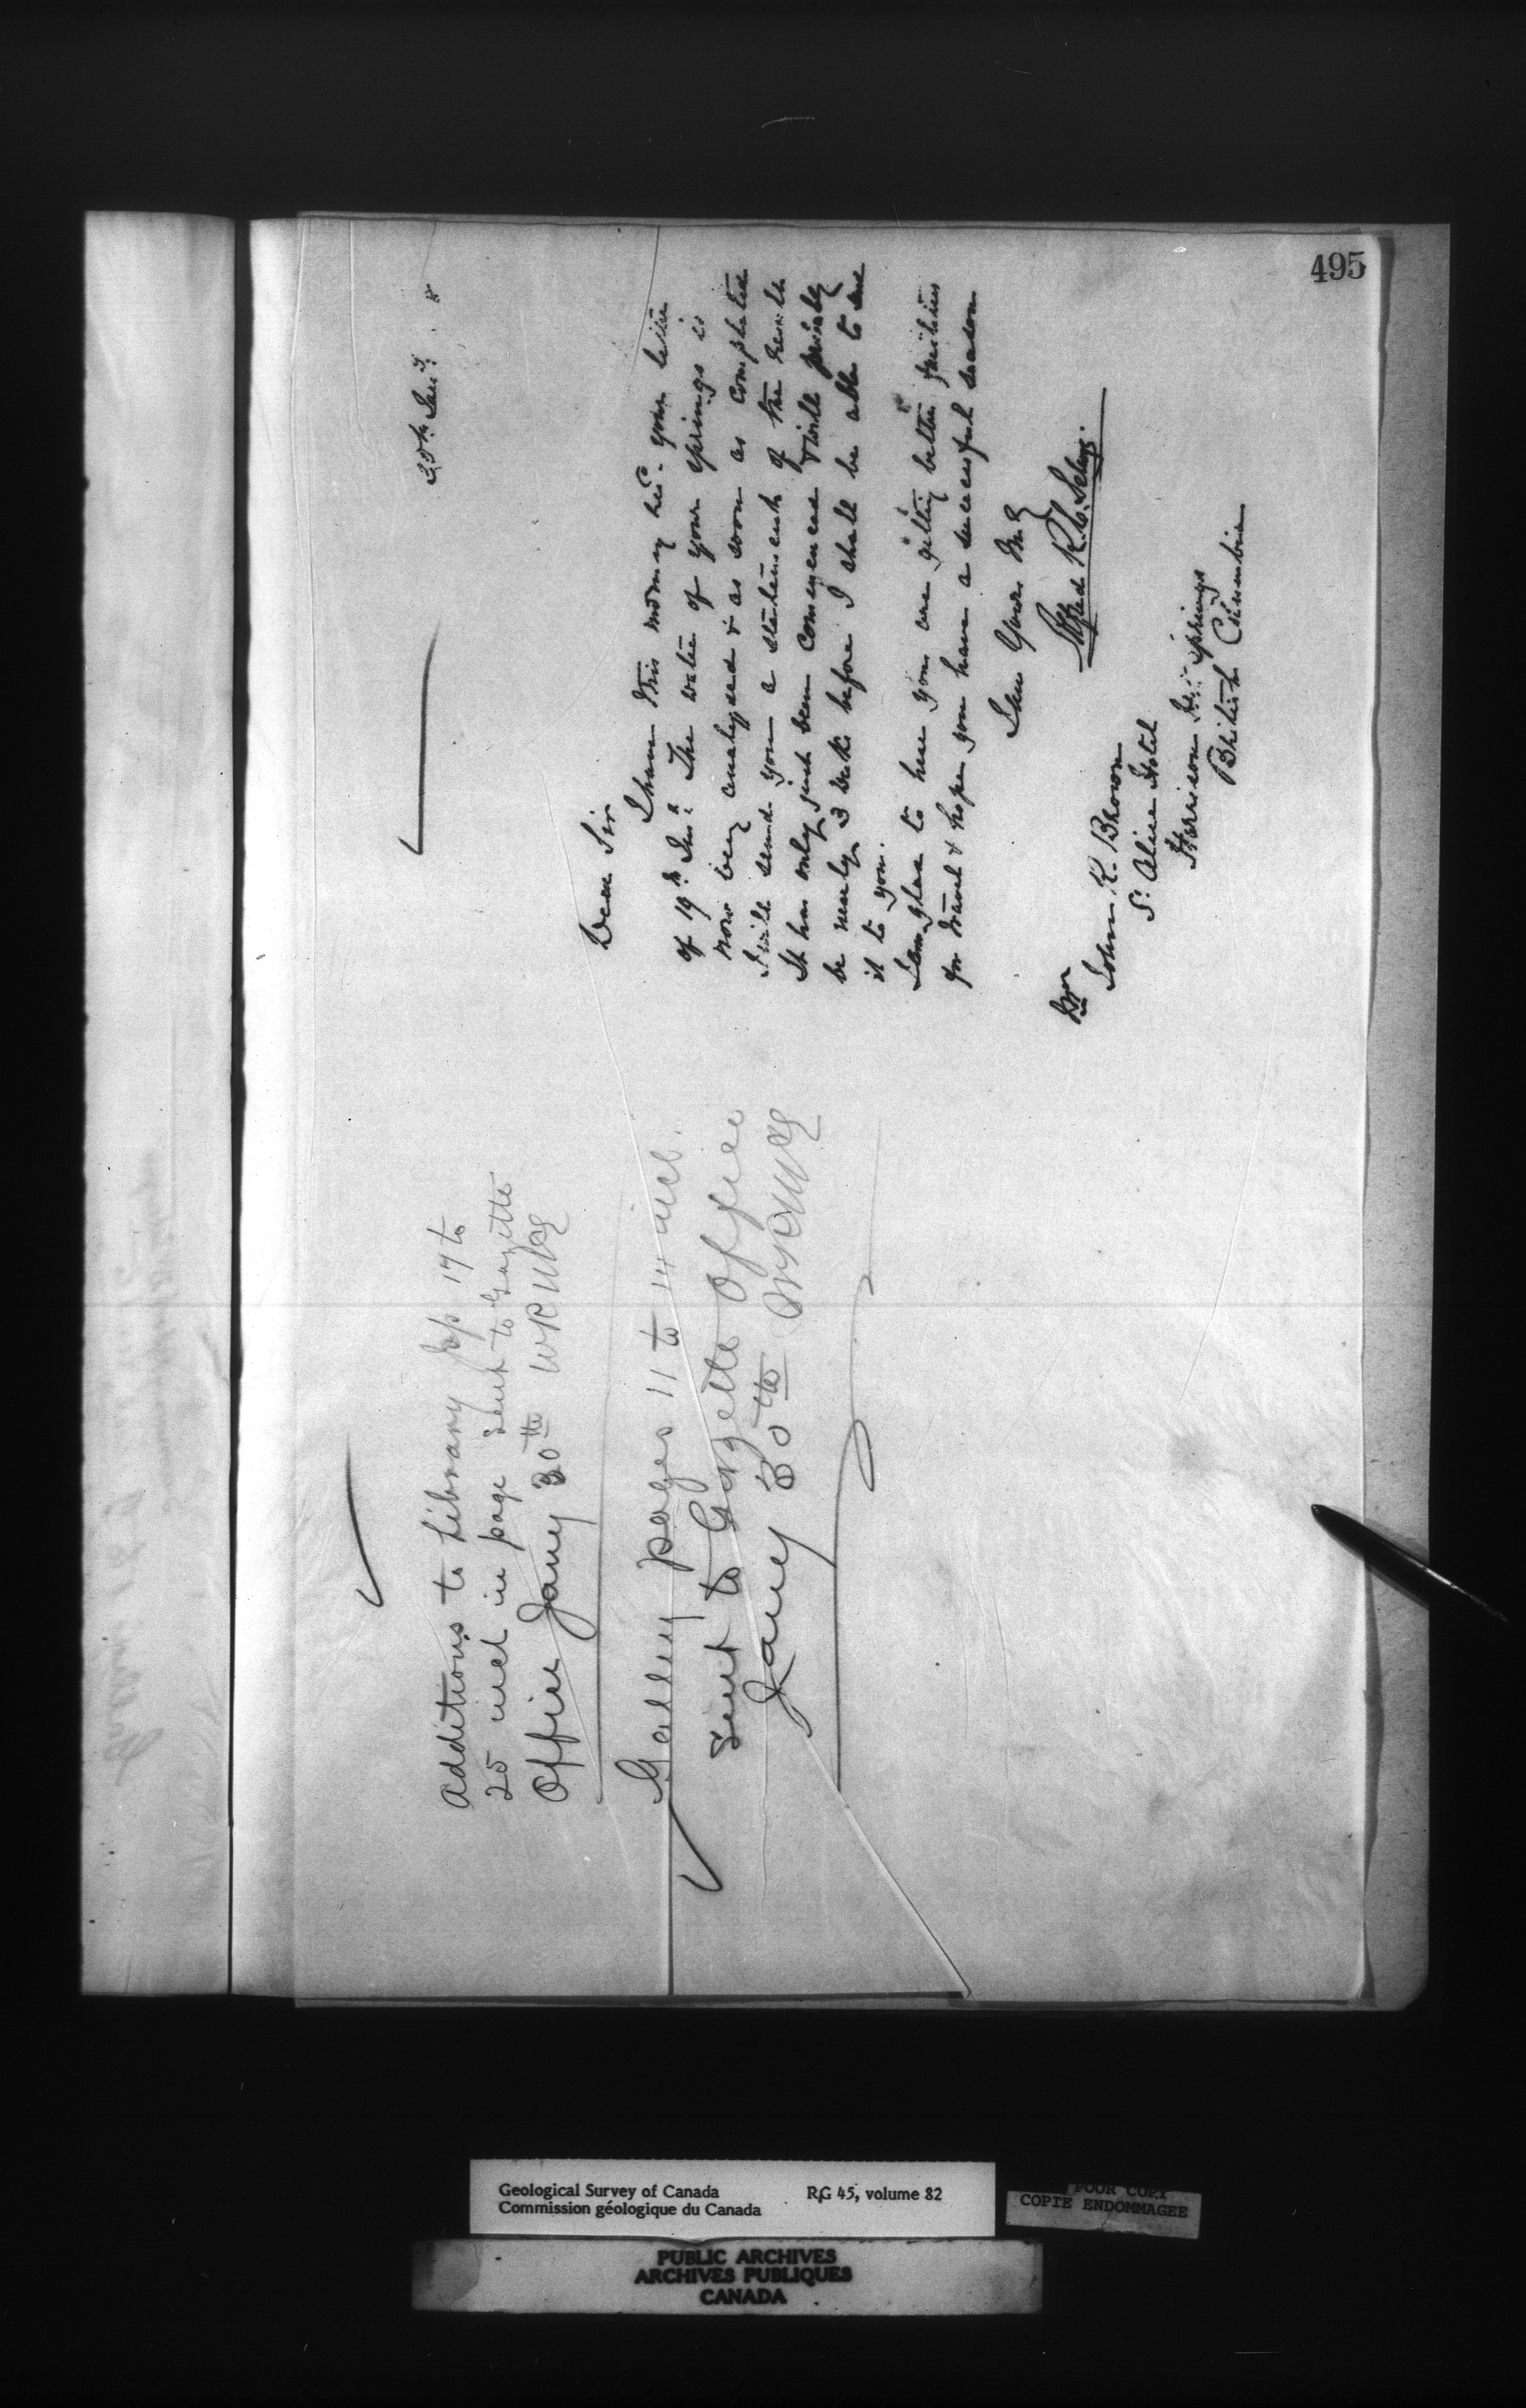 495
30th Jany. 8
Dear Sir
I have this morning recd. your letter
of 19th Inst. The water of your springs is
now being analyzed & as soon as completed
I will send you a statement of the results
It has only just been commenced & will probably
be nearly 3 weeks before I shall be able to send
it to you.
I am glad to hear you are getting better facilities
for travel & hope you have a successful season
I am Yours truly
Alfred R. C. Selwyn.
John R. Brown
St. Alice Hotel
Harrison Hot Springs
British Columbia
Additions to Library pp 17 to
25 incl in page sent to Gazette
Office Jany 30th
Galley pages 11 to 14 incl.
sent to Gazette Office
Jany 30th
Geological Survey of Canada RG 45, volume 82
Commission géologique du Canada
POOR COPY
COPIE ENDOMMAGEE
PUBLIC ARCHIVES
ARCHIVES PUBLIQUES
CANADA